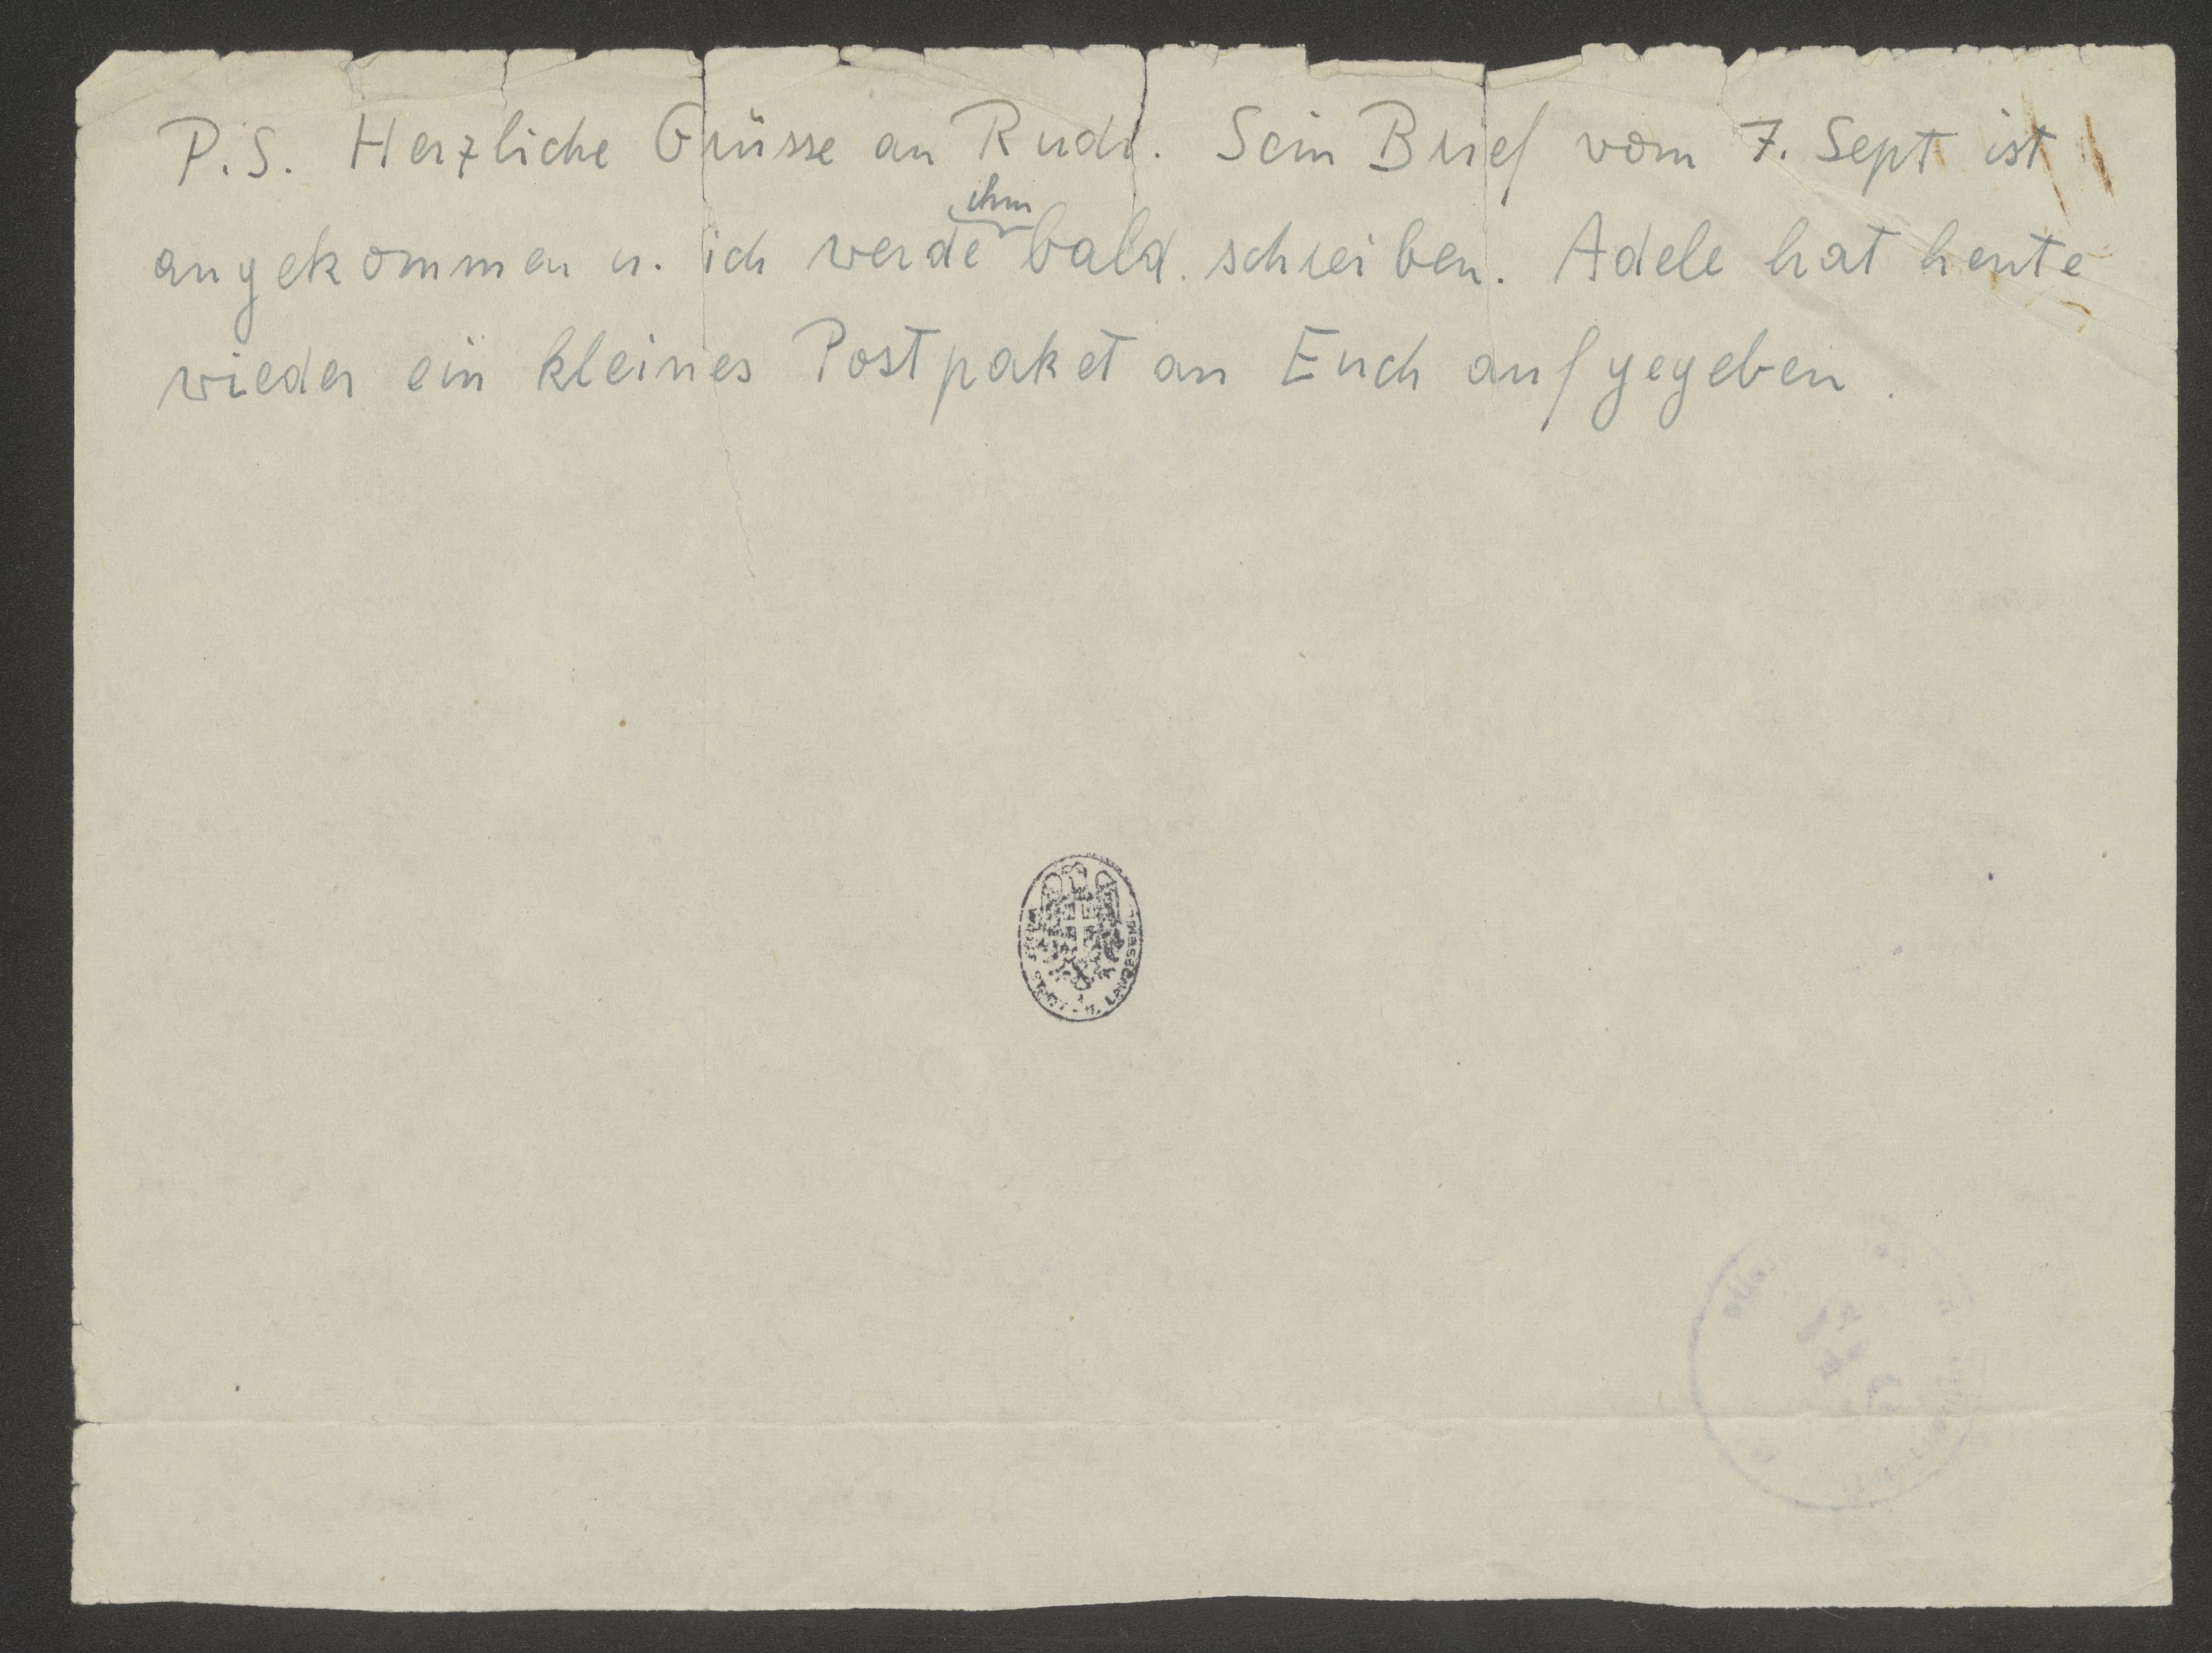 P.S. Herzliche Grüsse an Rudi. Sein Brief vom 7. Sept ist
ihm
angekommen u. ich werde bald schreiben. Adele hat heute
wieder ein kleines Postpaket an Euch aufgegeben.